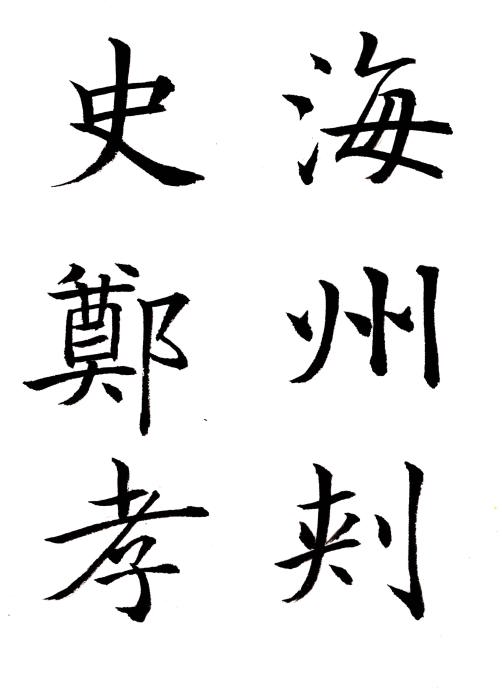 海州刾
史鄭孝